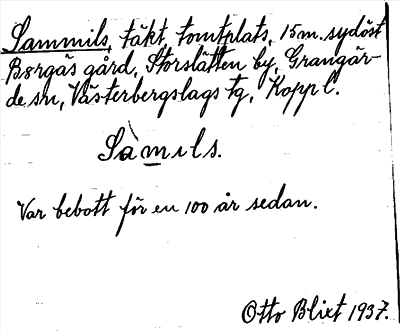 Sammils, täkt, tomtplats, 15 m. sydöst
Bergås gård, Storslätten by, Grangär-
de sn, Västerbergslags tg, Koppl.
Sàmıls.
Var bebott för en 100 år sedan.
Otto Blixt 1937.